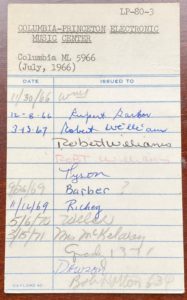 LP-80-3
COLUMBIA-PRINCETON ELECTRONIC
MUSIC CENTER
Columbia ML 5966
(July, 1966)
DATE ISSUED TO
11/30/66
12-8-66 Rupert Barber
3-13-67 Robert Williams
Robert Williams
Robt Williams
Tyron
9/26/69 Barber ?
11/14/69 Richey
5/6/70 Wells
2/5/71 Mrs McKelvey
1971
Dawson
GAYLORD 40